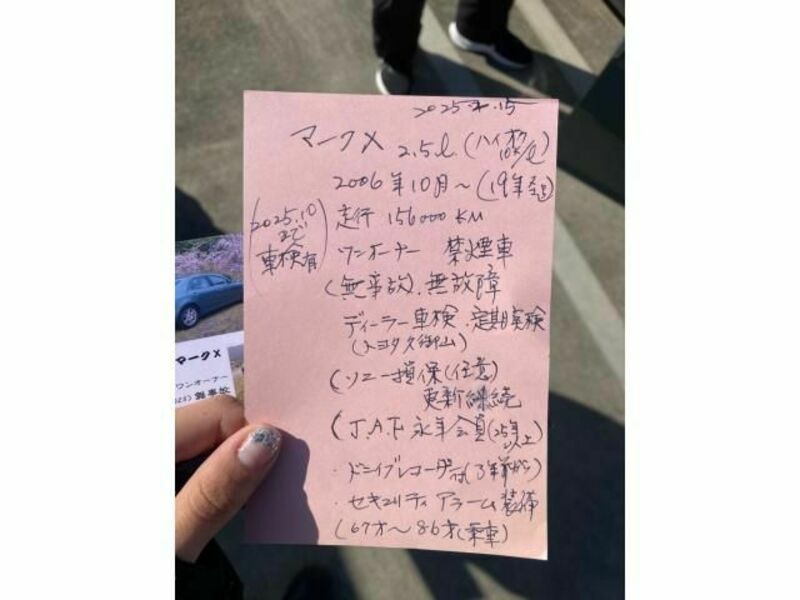 2025.4.15
マークX 2.5ℓ.(ハイオク 10K/ℓ)
2006年10月~(19年至る)
(2025.10
まで
車検有)
走行 156000KM
ワンオーナー 禁煙車
(無事故.無故障
ディーラー車検.定期点検
(トヨタ久御山)
(ソニー損保(任意)
更新継続
(J.A.F 永年会員(25年以上)
・ドライブレコーダー付(3年前から)
・セキュリティ アラーム 装備
(67才~86才(乗車)
マークX
ワンオーナー
無事故